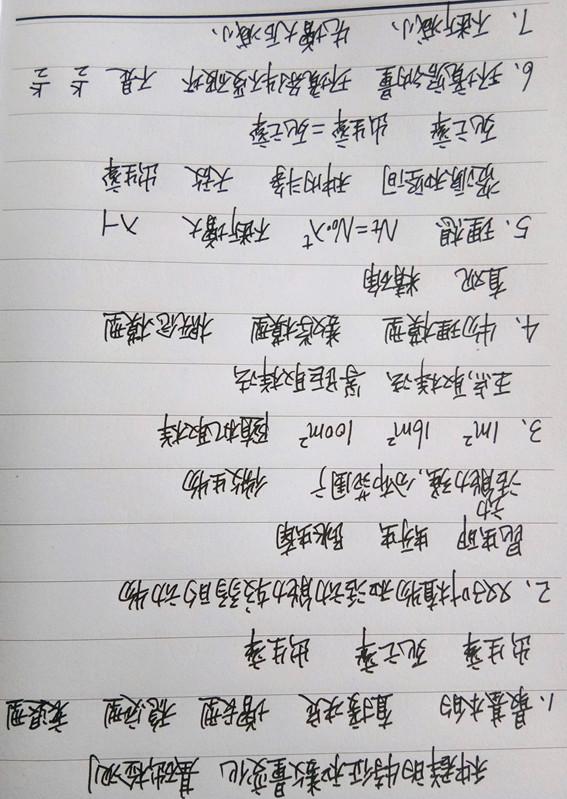 种群的特征和数量变化 基础检测
1、最基本的 直接决定 增长型 稳定型 衰退型
出生率 死亡率 出生率
2、双子叶植物和活动能力较弱的动物
昆虫卵 蚜虫 跳蝻
活动能力强,分布范围广 微生物
3、1m² 16m² 100m² 随机取样
五点取样法、等距取样法
4、物理模型 数学模型 概念模型
直观 精确
5、理想 Nt=N₀·λᵗ 不断增大 λ-1
资源和空间 种内斗争 天敌 出生率
死亡率 出生率=死亡率
6、环境容纳量 环境条件不受破坏 不是 K/2 K/2
7、不断减小、先增大后减小、